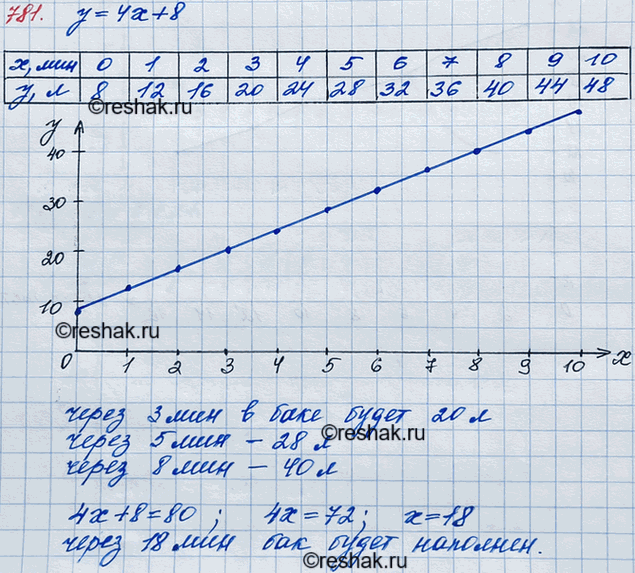 781. y = 4x+8
x, мин 0 1 2 3 4 5 6 7 8 9 10
y, л 8 12 16 20 24 28 32 36 40 44 48
©reshak.ru
y
40
30
20
10
©reshak.ru
0 1 2 3 4 5 6 7 8 9 10 x
через 3 мин в баке будет 20 л
через 5 мин – 28 л
©reshak.ru
через 8 мин – 40 л
4x+8=80 ; 4x=72; x=18
через 18 мин бак будет наполнен.
©reshak.ru